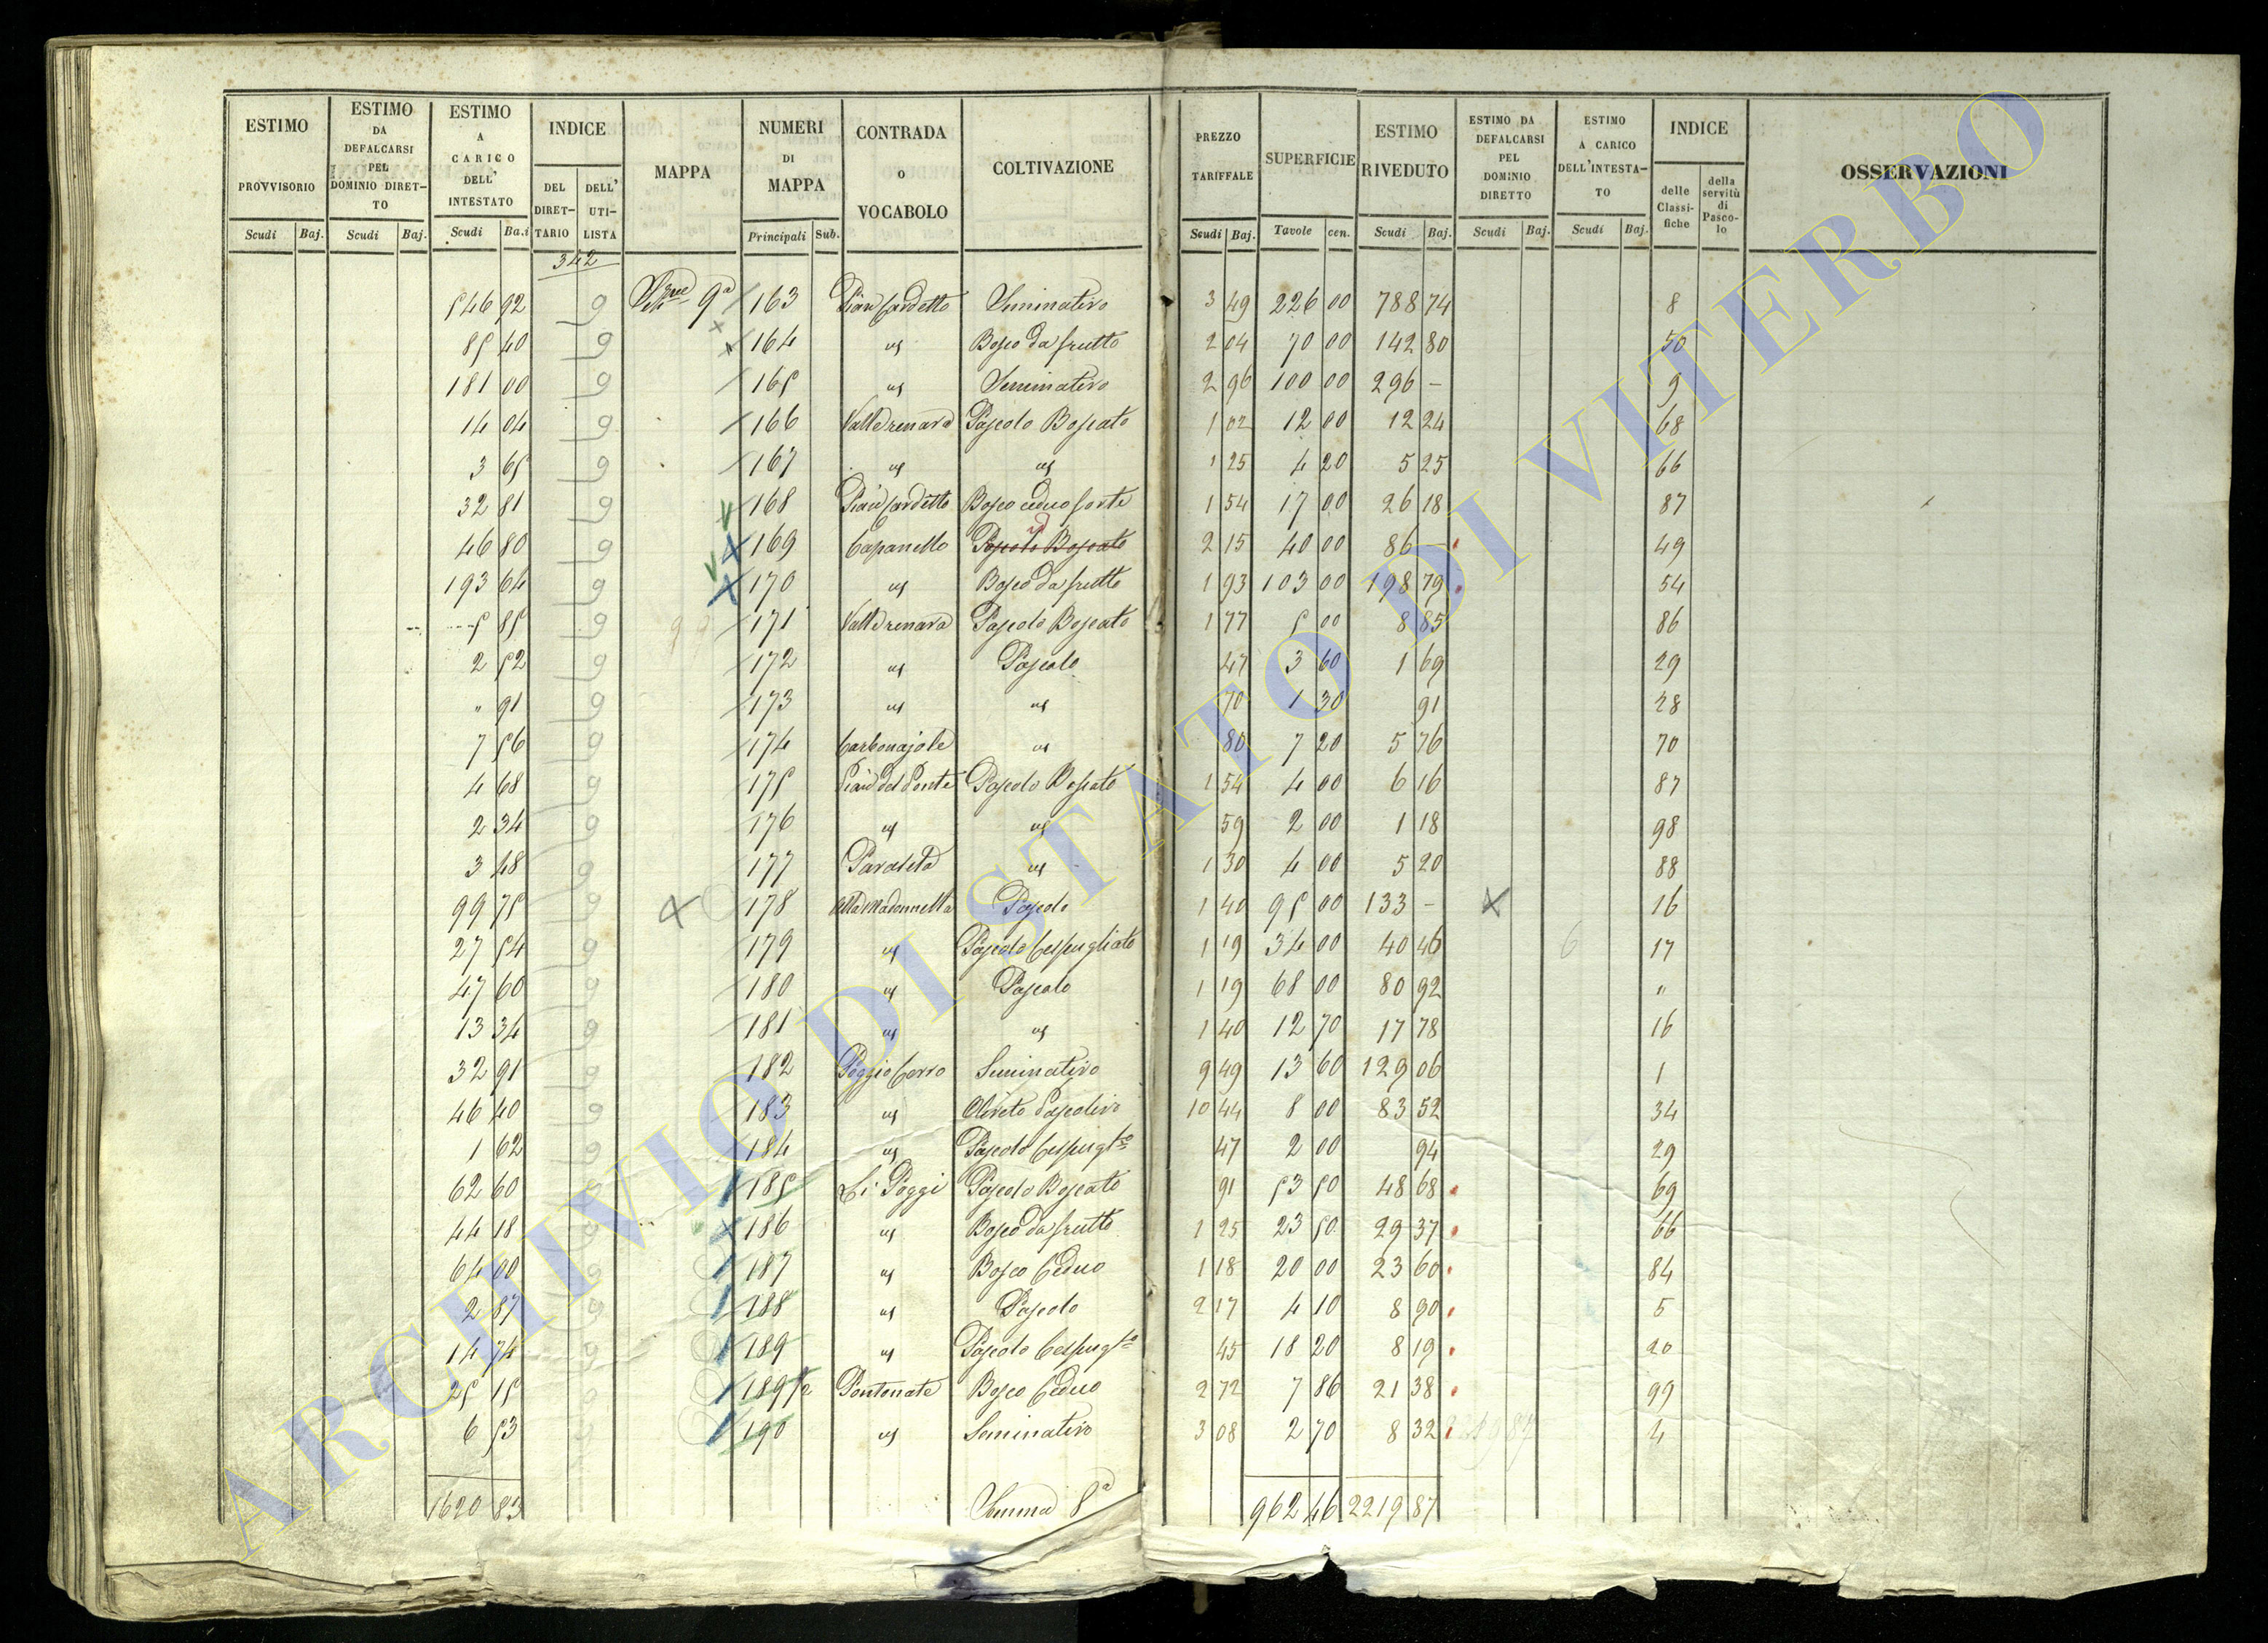 ESTIMO PROVVISORIO | ESTIMO DA DEFALCARSI PEL DOMINIO DIRETTO | ESTIMO A CARICO DELL' INTESTATO | INDICE DEL DIRETTARIO | DELL' UTILISTA | MAPPA | NUMERI DI MAPPA | CONTRADA O VOCABOLO | COLTIVAZIONE | PREZZO TARIFFALE | SUPERFICIE | ESTIMO RIVEDUTO | ESTIMO DA DEFALCARSI PEL DOMINIO DIRETTO | ESTIMO A CARICO DELL'INTESTATO | INDICE delle Classifiche | della servitù di Pascolo | OSSERVAZIONI
Scudi | Baj. | Scudi | Baj. | Scudi | Ba.i | Principali | Sub. | Scudi | Baj. | Tavole | cen. | Scudi | Baj. | Scudi | Baj. | Scudi | Baj.
342
546 92 9 9a 163 Pian Cardetto Seminativo 3 49 226 00 788 74 8
85 40 9 164 us Bosco da frutto 2 04 70 00 142 80 50
181 00 9 165 us Seminativo 2 96 100 00 296 – 9
14 04 9 166 Valldrenara Pascolo Boscato 1 02 12 00 12 24 68
3 65 9 167 us us 1 25 4 20 5 25 66
32 81 9 168 Pian Cardetto Bosco ceduo forte 1 54 17 00 26 18 87
46 80 9 169 Capanello Pascolo Boscato id 2 15 40 00 86 – 49
193 64 9 170 us Bosco da frutto 1 93 103 00 198 79 54
5 85 9 171 Valldrenara Pascolo Boscato 1 77 5 00 8 85 86
2 52 9 172 us Pascolo 47 3 60 1 69 29
" 91 9 173 us us 70 1 30 91 28
7 56 9 174 Carbonajole us 80 7 20 5 76 70
4 68 9 175 Pian del Ponte Pascolo Boscato 1 54 4 00 6 16 87
2 34 9 176 us us 59 2 00 1 18 98
3 48 9 177 us 1 30 4 00 5 20 88
99 75 9 178 Pascolo 1 40 95 00 133 – 16
27 54 9 179 us Pascolo Cespugliato 1 19 34 00 40 46 6 17
47 60 9 180 us Pascolo 1 19 68 00 80 92 "
13 34 9 181 us us 1 40 12 70 17 78 16
32 91 9 182 Poggio Cerro Seminativo 9 49 13 60 129 06 1
46 40 9 183 us Oliveto Pascolivo 10 44 8 00 83 52 34
1 62 9 184 us Pascolo Cespugto 47 2 00 94 29
62 60 9 185 Li Poggi Pascolo Boscato 91 53 50 48 68 69
44 18 9 186 us Bosco da frutto 1 25 23 50 29 37 66
64 00 9 187 us Bosco Ceduo 1 18 20 00 23 60 84
2 87 9 188 us Pascolo 2 17 4 10 8 90 5
14 74 9 189 us Pascolo Cespugto 45 18 20 8 19 20
25 15 9 189 1/2 Pontonate Bosco Ceduo 2 72 7 86 21 38 99
6 53 9 190 us Seminativo 3 08 2 70 8 32 4
1620 83 Somma 8a 962 46 2219 87
ARCHIVIO DI STATO DI VITERBO